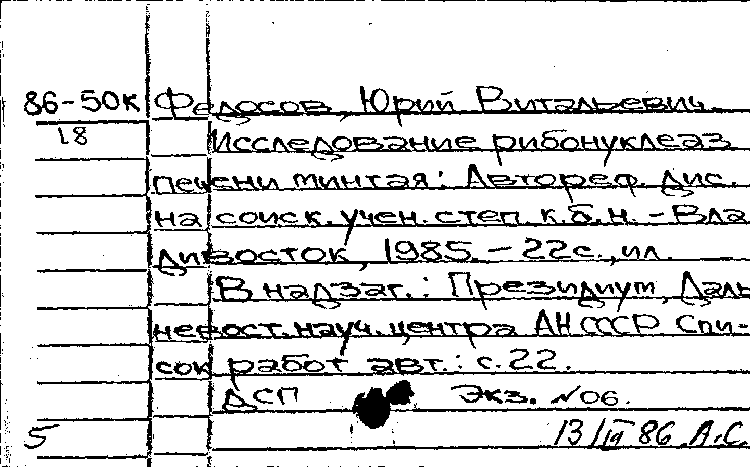 86-50к Федосов, Юрий Витальевич.
18 Исследование рибонуклеаз
печени минтая: Автореф. дис.
на соиск. учен. степ. к.б.н. - Вла
дивосток, 1985. - 22с., ил.
В надзаг.: Президиум, Даль
невост. науч. центра АН СССР Спи-
сок работ авт.: с.22.
ДСП Экз. №06.
5 13/III 86 А.С.